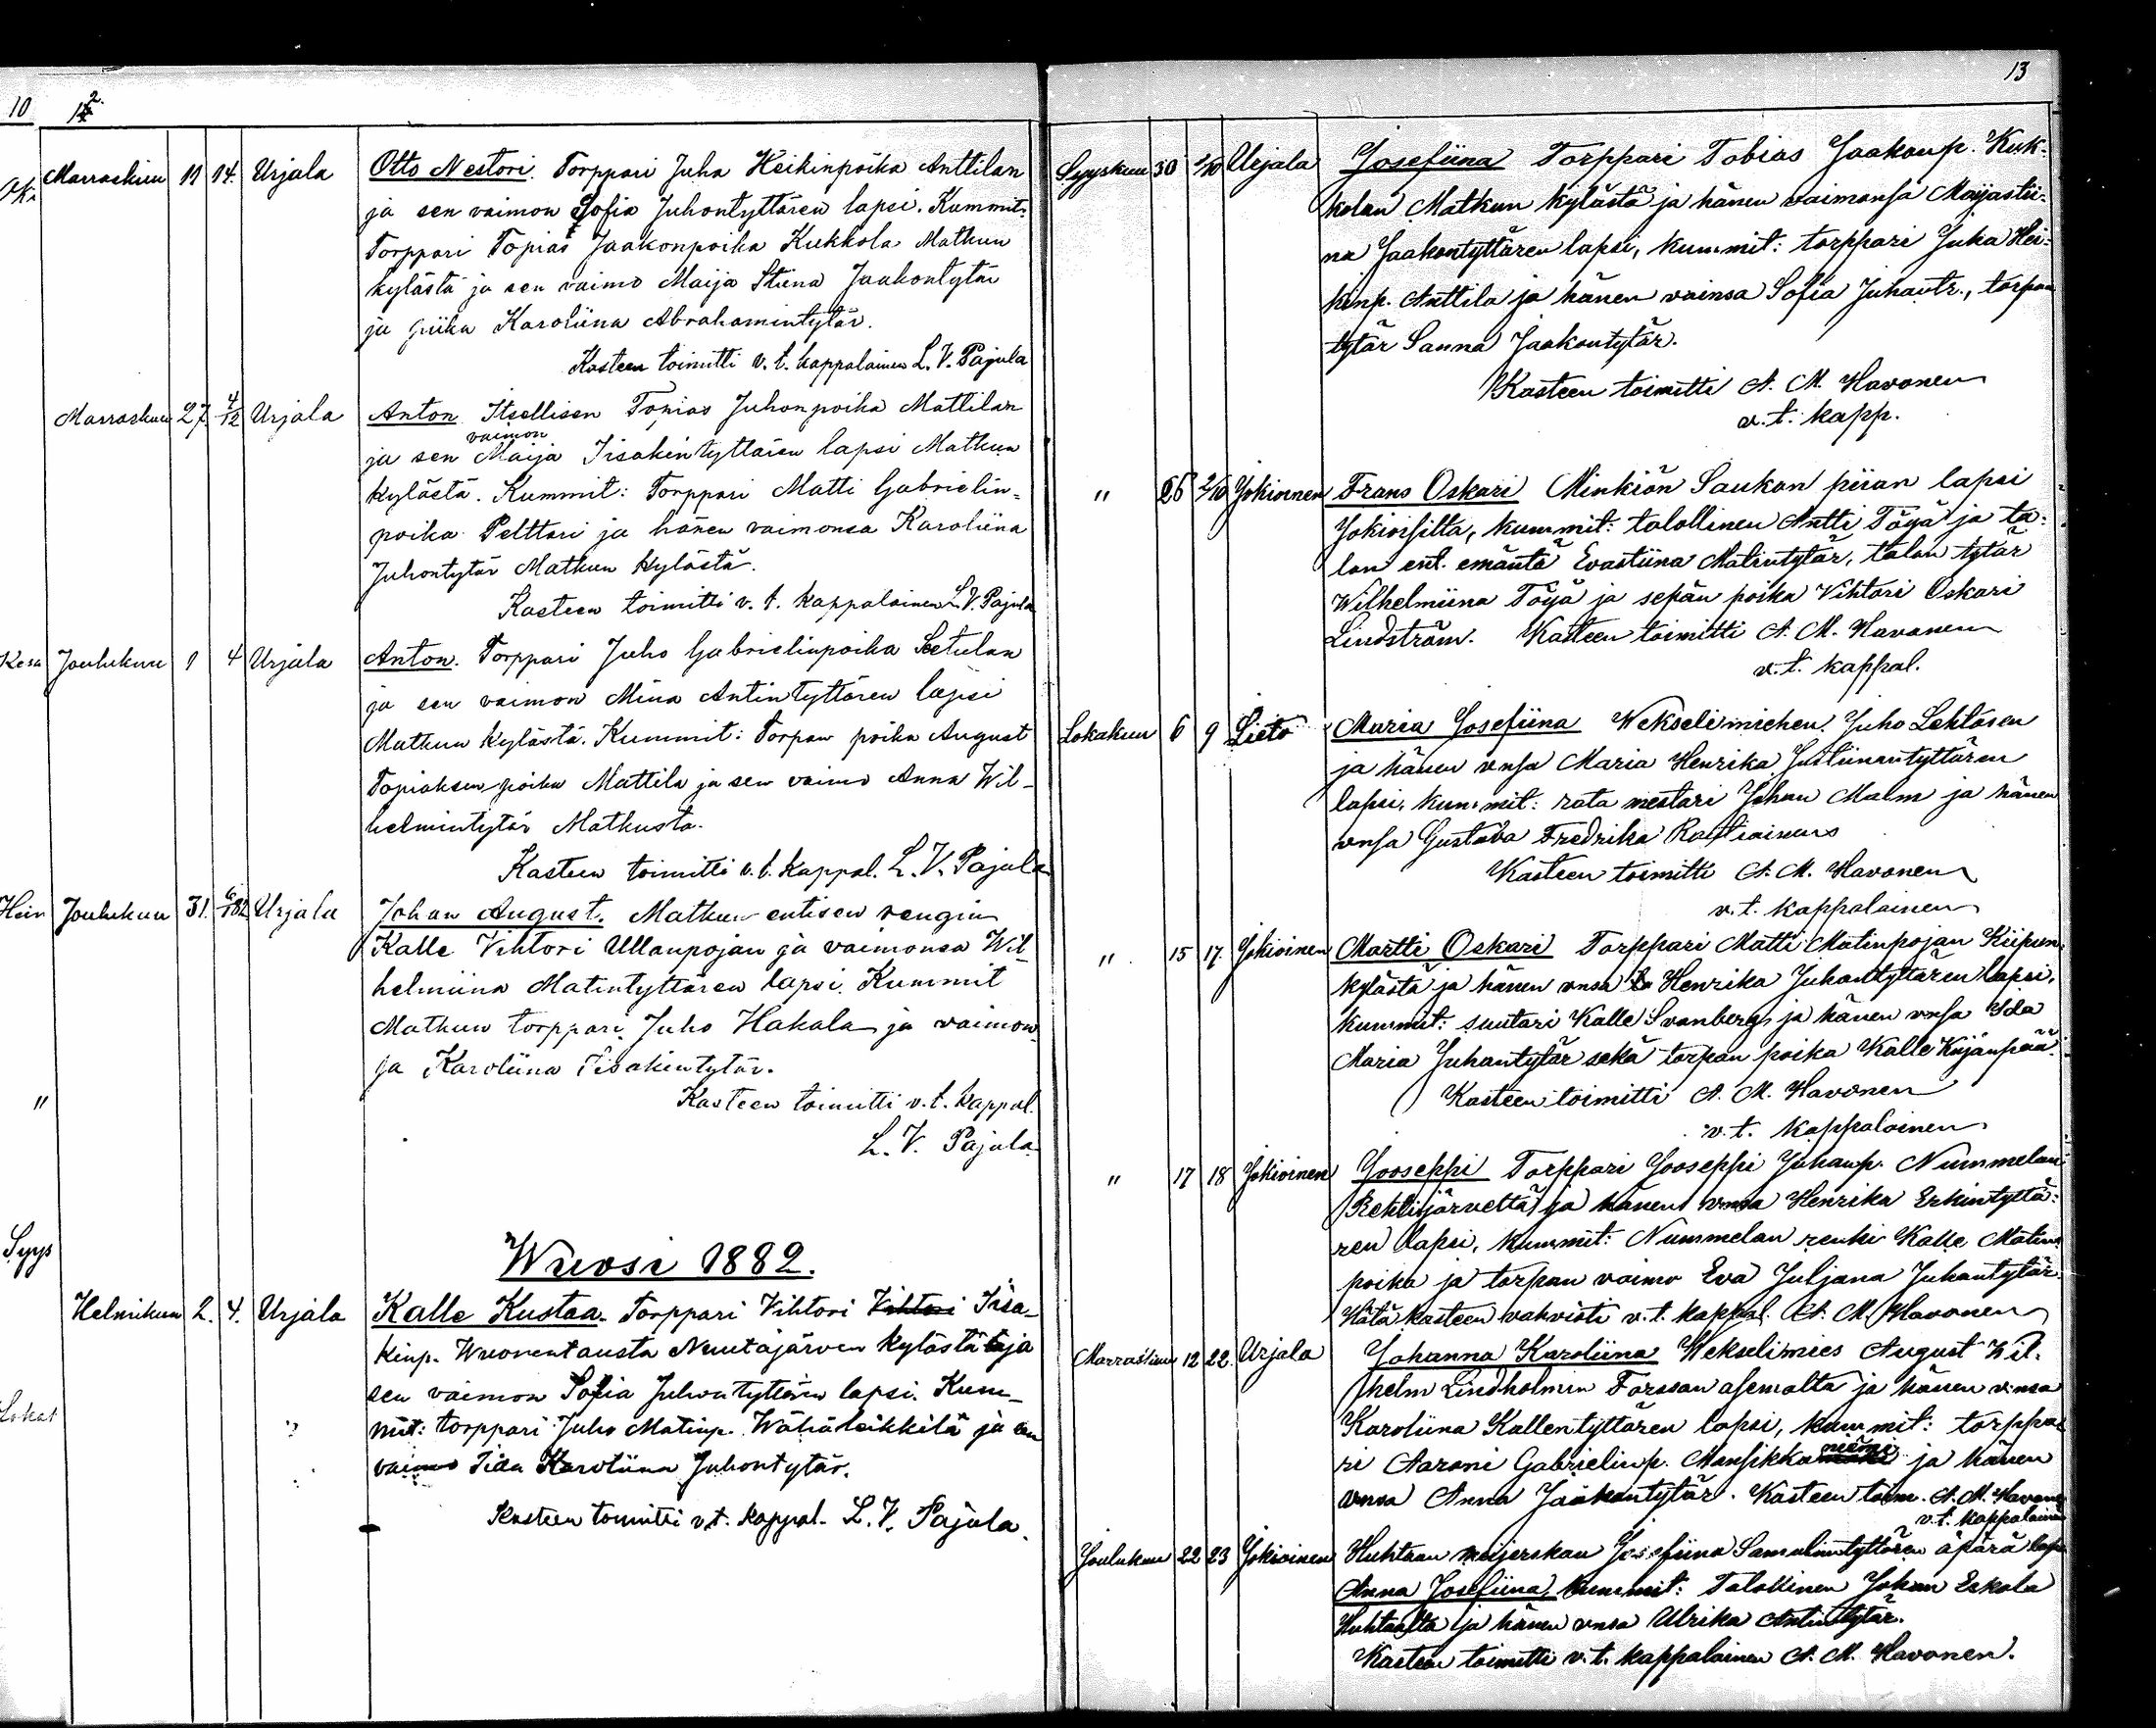 10
12
Marraskuu 11 14. Urjala Otto Nestori. Torppari Juha Heikinpoika Anttilan
ja sen vaimon Sofia Juhontyttären lapsi. Kummit:
Torppari Topias Jaakonpoika Kukkola Matkun
kylästä ja sen vaimo Maija Stiina Jaakontytär
ja piika Karoliina Abrahamintytär.
Kasteen toimitti v. t. kappalainen L. V. Pajula
Marraskuu 27. 4/12 Urjala Anton Itsellisen Topias Juhonpoika Mattilan
ja sen vaimon Maija Iisakintyttären lapsi Matkun
kylästä. Kummit: Torppari Matti Gabrielin-
poika Pelttari ja hänen vaimonsa Karoliina
Juhontytär Matkun kylästä.
Kasteen toimitti v. t. kappalainen L. V. Pajula
Kesä
Joulukuu 1 4 Urjala Anton. Torppari Juho Gabrielinpoika Seetulan
ja sen vaimon Miina Antintyttären lapsi
Matkun kylästä. Kummit: Torpan poika August
Topiaksen poika Mattila ja sen vaimo Anna Wil-
helmintytär Matkusta.
Kasteen toimitti v. t. kappal. L. V. Pajula
Hein
Joulukuu 31. 6/1 82 Urjala Johan August. Matkun entisen rengin
Kalle Vihtori Ullanpojan ja vaimonsa Wil-
helmiina Matintyttären lapsi. Kummit
Matkun torppari Juho Hakala ja vaimon
ja Karoliina Iisakintytär.
Kasteen toimitti v. t. kappal.
"
L. V. Pajula
Syys
Wuosi 1882.
Helmikuu 2. 4. Urjala Kalle Kustaa. Torppari Vihtori Vihtori Iisa-
kinp. Wuorentausta Nuutajärven kylästä ja
sen vaimon Sofia Juhontyttären lapsi. Kum-
mit: torppari Juho Matinp. Wähäleikkilä ja sen
vaimo Iida Karoliina Juhontytär.
Kasteen toimitti v. t. kappal. L. V. Pajula.
Lokak
13
Syyskuu 30 1/10 Urjala Josefiina Torppari Tobias Jaakonp. Kuk-
kolan Matkun kylästä ja hänen vaimonsa Maijastii-
na Jaakontyttären lapsi, kummit: torppari Juha Hei-
kinp. Anttila ja hänen vaimsa Sofia Juhantr., torpan
tytär Sanna Jaakontytär.
Kasteen toimitti A. M. Havonen
v. t. kapp.
" 26 2/10 Jokioinen Frans Oskari Minkiön Saukon piian lapsi
Jokioisilta, kummit: talollinen Antti Töyä ja ta-
lon ent. emäntä Evastiina Matintytär, talon tytär
Wilhelmiina Töyä ja sepän poika Vihtori Oskari
Lindström. Kasteen toimitti A. M. Havonen
v. t. kappal.
Lokakuu 6 9 Lieto Maria Josefiina Wekselimiehen Juho Lehtosen
ja hänen vnsa Maria Henrika Justiinantyttären
lapsi, kummit: rata mestari Johan Malm ja hänen
vnsa Gustava Fredrika
Kasteen toimitti A. M. Havonen
v. t. kappalainen
" 15 17. Jokioinen Martti Oskari Torppari Matti Matinpojan Kiipun
kylästä ja hänen vnsa Henrika Juhantyttären lapsi,
kummit: suutari Kalle Svanberg ja hänen vnsa Ida
Maria Juhantytär sekä torpan poika Kalle Kujanpää.
Kasteen toimitti A. M. Havonen
v. t. kappalainen
" 17 18 Jokioinen Jooseppi Torppari Jooseppi Juhanp. Nummelan
Rehtijärveltä ja hänen vnsa Henrika Erkintyttä-
ren lapsi, kummit: Nummelan renki Kalle Matin
poika ja torpan vaimo Eva Juljana Juhantytär.
Hätäkasteen vahvisti v. t. kappal. A. M. Havonen
Marraskuu 12 22 Urjala Johanna Karoliina Wekselimies August Wil-
helm Lindholmin Forssan asemalta ja hänen vnsa
Karoliina Kallentyttären lapsi, kummit: torppa-
ri Aaroni Gabrielinp. Mansikkaniemi ja hänen
vnsa Anna Jaakontytär. Kasteen toim. A. M. Havonen
v. t. kappalainen
Joulukuu 22 23 Jokioinen Huhtaan meijerskan Josefiina Samulintyttären äpärä lapsi
Anna Josefiina, kummit: Talollinen Johan Eskola
Huhtaalta ja hänen vnsa Ulrika Antintytär.
Kasteen toimitti v. t. kappalainen A. M. Havonen.